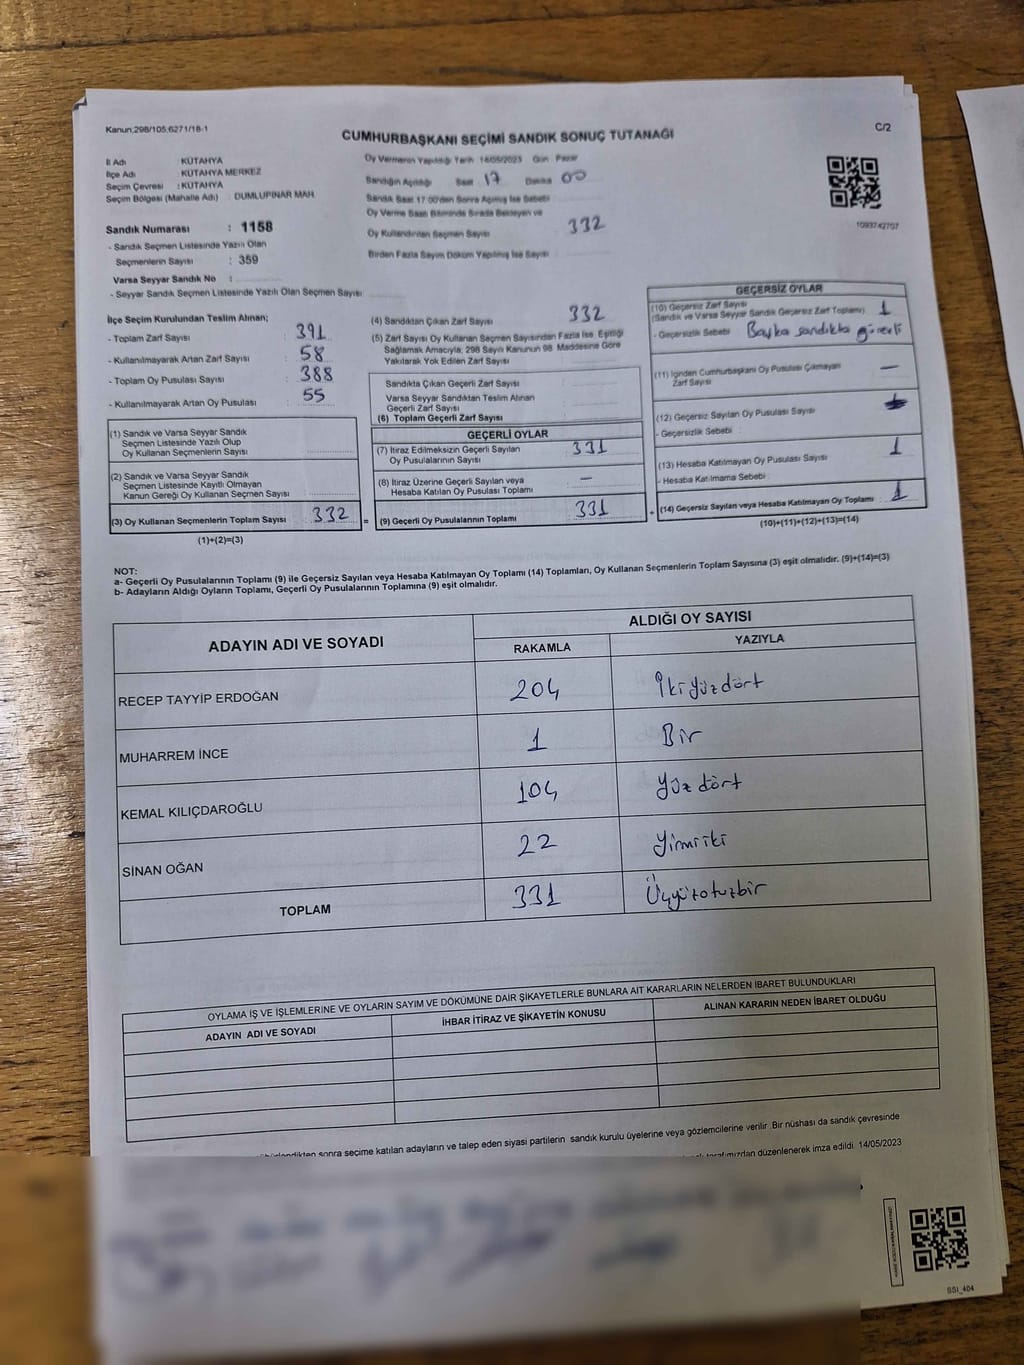 Kanun:298/105;6271/18-1
C/2
CUMHURBAŞKANI SEÇİMİ SANDIK SONUÇ TUTANAĞI
İl Adı : KÜTAHYA
İlçe Adı : KÜTAHYA MERKEZ
Seçim Çevresi : KÜTAHYA
Seçim Bölgesi (Mahalle Adı) : DUMLUPINAR MAH
Oy Vermenin Yapıldığı Tarih 14/05/2023 Gün Pazar
Sandığın Açıldığı Saat 17 Dakika 00
Sandık Saat 17:00'den Sonra Açılmış İse Sebebi
Oy Verme Saati Bitiminde Sırada Bekleyen ve
Oy Kullandırılan Seçmen Sayısı 332
Birden Fazla Sayım Döküm Yapılmış İse Sayısı
1093742707
Sandık Numarası : 1158
- Sandık Seçmen Listesinde Yazılı Olan
Seçmenlerin Sayısı : 359
Varsa Seyyar Sandık No :
- Seyyar Sandık Seçmen Listesinde Yazılı Olan Seçmen Sayısı
İlçe Seçim Kurulundan Teslim Alınan;
- Toplam Zarf Sayısı : 391
- Kullanılmayarak Artan Zarf Sayısı : 58
- Toplam Oy Pusulası Sayısı : 388
- Kullanılmayarak Artan Oy Pusulası : 55
(1) Sandık ve Varsa Seyyar Sandık
Seçmen Listesinde Yazılı Olup
Oy Kullanan Seçmenlerin Sayısı
(2) Sandık ve Varsa Seyyar Sandık
Seçmen Listesinde Kayıtlı Olmayan
Kanun Gereği Oy Kullanan Seçmen Sayısı
(3) Oy Kullanan Seçmenlerin Toplam Sayısı 332
(1)+(2)=(3)
(4) Sandıktan Çıkan Zarf Sayısı 332
(5) Zarf Sayısı Oy Kullanan Seçmen Sayısından Fazla İse Eşitliği
Sağlamak Amacıyla, 298 Sayılı Kanunun 98. Maddesine Göre
Yakılarak Yok Edilen Zarf Sayısı
Sandıkta Çıkan Geçerli Zarf Sayısı
Varsa Seyyar Sandıktan Teslim Alınan
Geçerli Zarf Sayısı
(6) Toplam Geçerli Zarf Sayısı
GEÇERLİ OYLAR
(7) İtiraz Edilmeksizin Geçerli Sayılan
Oy Pusulalarının Sayısı 331
(8) İtiraz Üzerine Geçerli Sayılan veya
Hesaba Katılan Oy Pusulası Toplamı —
= (9) Geçerli Oy Pusulalarının Toplamı 331
GEÇERSİZ OYLAR
(10) Geçersiz Zarf Sayısı
(Sandık ve Varsa Seyyar Sandık Geçersiz Zarf Toplamı) 1
- Geçersizlik Sebebi : Başka sandıkta görevli
(11) İçinden Cumhurbaşkanı Oy Pusulası Çıkmayan
Zarf Sayısı —
(12) Geçersiz Sayılan Oy Pusulası Sayısı
- Geçersizlik Sebebi :
(13) Hesaba Katılmayan Oy Pusulası Sayısı 1
- Hesaba Katılmama Sebebi :
+ (14) Geçersiz Sayılan veya Hesaba Katılmayan Oy Toplamı : 1
(10)+(11)+(12)+(13)=(14)
NOT:
a- Geçerli Oy Pusulalarının Toplamı (9) ile Geçersiz Sayılan veya Hesaba Katılmayan Oy Toplamı (14) Toplamları, Oy Kullanan Seçmenlerin Toplam Sayısına (3) eşit olmalıdır. (9)+(14)=(3)
b- Adayların Aldığı Oyların Toplamı, Geçerli Oy Pusulalarının Toplamına (9) eşit olmalıdır.
ADAYIN ADI VE SOYADI
ALDIĞI OY SAYISI
RAKAMLA YAZIYLA
RECEP TAYYİP ERDOĞAN 204 İkiyüzdört
MUHARREM İNCE 1 Bir
KEMAL KILIÇDAROĞLU 104 Yüz dört
SİNAN OĞAN 22 Yirmiiki
TOPLAM 331 Üçyüzotuzbir
OYLAMA İŞ VE İŞLEMLERİNE VE OYLARIN SAYIM VE DÖKÜMÜNE DAİR ŞİKAYETLERLE BUNLARA AİT KARARLARIN NELERDEN İBARET BULUNDUKLARI
ADAYIN ADI VE SOYADI İHBAR İTİRAZ VE ŞİKAYETİN KONUSU ALINAN KARARIN NEDEN İBARET OLDUĞU
sonra seçime katılan adayların ve talep eden siyasi partilerin sandık kurulu üyelerine veya gözlemcilerine verilir. Bir nüshası da sandık çevresinde
tarafımızdan düzenlenerek imza edildi. 14/05/2023
SSI_404